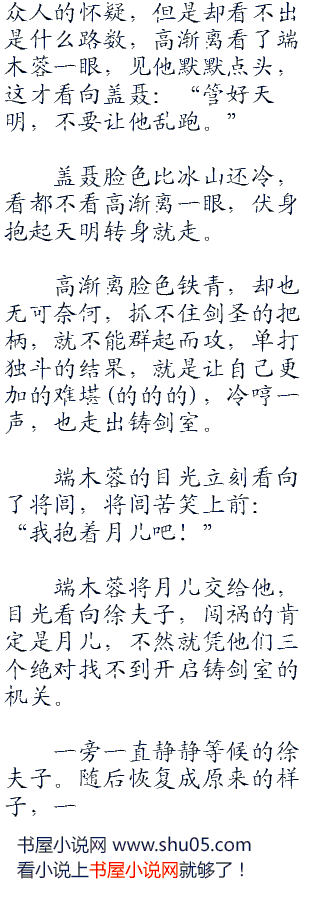 众人的怀疑，但是却看不出
是什么路数，高渐离看了端
木蓉一眼，见他默默点头，
这才看向盖聂：“管好天
明，不要让他乱跑。”
盖聂脸色比冰山还冷，
看都不看高渐离一眼，伏身
抱起天明转身就走。
高渐离脸色铁青，却也
无可奈何，抓不住剑圣的把
柄，就不能群起而攻，单打
独斗的结果，就是让自己更
加的难堪(的的的)，冷哼一
声，也走出铸剑室。
端木蓉的目光立刻看向
了将闾，将闾苦笑上前：
“我抱着月儿吧！”
端木蓉将月儿交给他，
目光看向徐夫子，闯祸的肯
定是月儿，不然就凭他们三
个绝对找不到开启铸剑室的
机关。
一旁一直静静等候的徐
夫子。随后恢复成原来的样
子，一
书屋小说网 www.shu05.com
看小说上书屋小说网就够了！